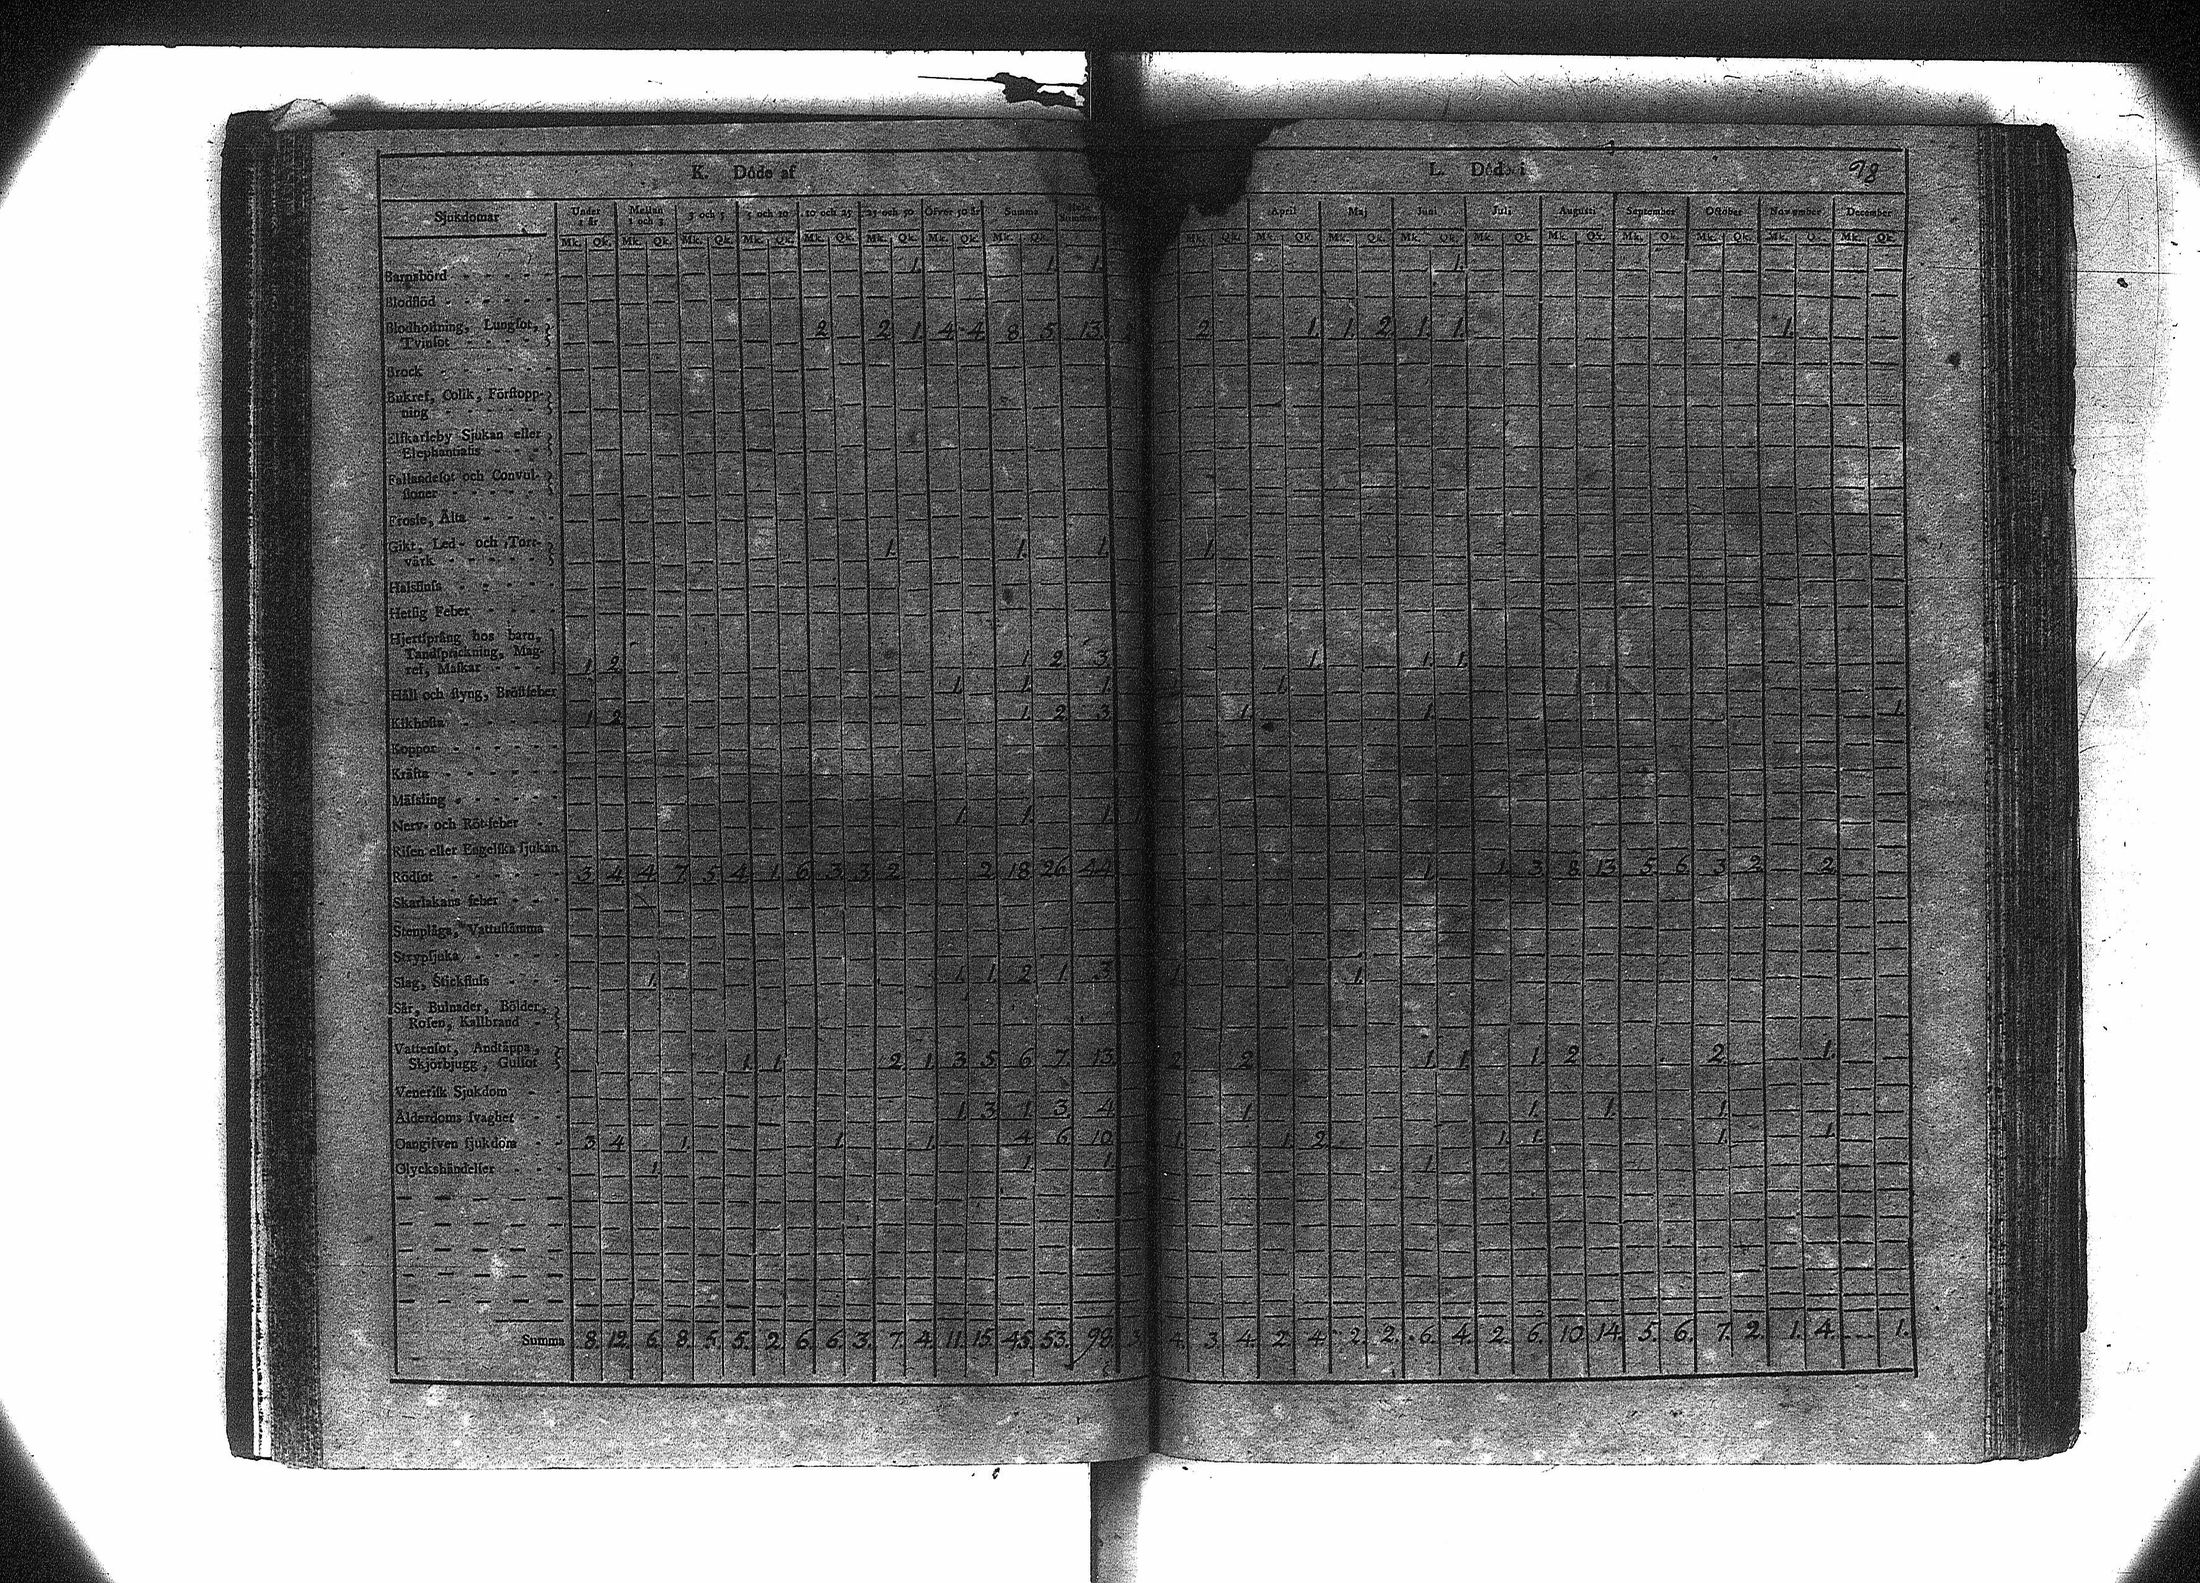 K. Döde af
L. Döde i
98
Sjukdomar Under 1 år Mellan 1 och 3 3 och 5 5 och 10 10 och 25 25 och 50 Öfver 50 år Summa April Maj Juni Juli Augusti September October November December
Mk. Qk. Mk. Qk. Mk. Qk. Mk. Qk. Mk. Qk. Mk. Qk. Mk. Qk. Mk. Qk. Mk. Qk. Mk. Qk. Mk. Qk. Mk. Qk. Mk. Qk. Mk. Qk. Mk. Qk. Mk. Qk. Mk. Qk. Mk. Qk.
Barnsbörd 1. 1. 1. 1.
Blodflöd
Blodhostning, Lungsot, Tvinsot 2 2 1. 4 4 8 5 13. 2 1. 1. 2 1. 1. 1.
Brock
Bukref, Colik, Förstoppning
Elfkarleby Sjukan eller Elephantiasis
Fallandesot och Convulsioner
Frossa, Älta
Gikt, Led- och Torrvärk 1. 1. 1. 1.
Halsflufs
Hetsig Feber
Hjertsprång hos barn, Tandsprickning, Magref, Maskar 1. 2 1. 2 3. 1. 1. 1.
Håll och styng, Bröstfeber 1. 1. 1. 1.
Kikhosta 1. 2 1. 2 3. 1. 1. 1.
Koppor
Kräfta
Mässling
Nerv- och Rötfeber 1. 1. 1. 1.
Risen eller Engelska sjukan
Rödsot 3 4 4 7 5 4 1 6 3 3 2 2 18 26 44 1. 1. 3 8 13 5 6 3 2 2
Skarlakans feber
Stenplåga, Vattustämma
Strypsjuka
Slag, Stickflufs 1. 1. 1 2 1 3 1. 1.
Sår, Bulnader, Bölder, Rosen, Kallbrand
Vattensot, Andtäppa, Skjörbjugg, Gulsot 1. 1. 2 1. 3 5 6 7 13 2 2 1. 1. 1. 2 2 1.
Venerisk Sjukdom
Ålderdoms svaghet 1. 3 1. 3 4 1. 1. 1. 1.
Oangifven sjukdom 3 4 1. 1. 1. 4 6 10 1. 1. 2 1. 1. 1. 1.
Olyckshändelser 1. 1. 1. 1.
Summa 8. 12. 6. 8. 5. 5. 2. 6. 6. 3. 7. 4. 11. 15. 45. 53. 98. 3. 4. 3. 4. 2. 4. 2. 2. 6. 4. 2. 6. 10 14. 5. 6. 7. 2. 1. 4. 1.